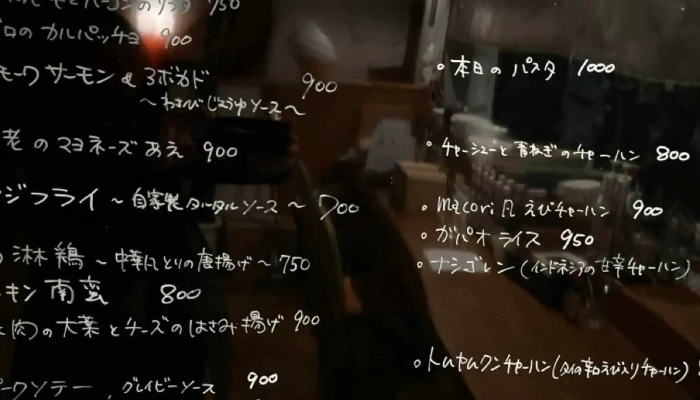 のリフタ 750
ロのカルパッチョ 900
モークサーモン&アボカド 900
〜わさびじょうゆソース〜
老のマヨネーズあえ 900
ジフライ〜自家製タルタルソース〜 700
淋鶏〜中華風とりの唐揚げ〜750
キン南蛮 800
肉の大葉とチーズのはさみ揚げ 900
ークソテー、グレイビーソース 900
○本日のパスタ 1000
○チャーシューと青ねぎのチャーハン 800
○macori風えびチャーハン 900
○ガパオライス 950
○ナシゴレン(インドネシアの甘辛チャーハン)
○トムヤムクンチャーハン(タイの辛口えび入りチャーハン)